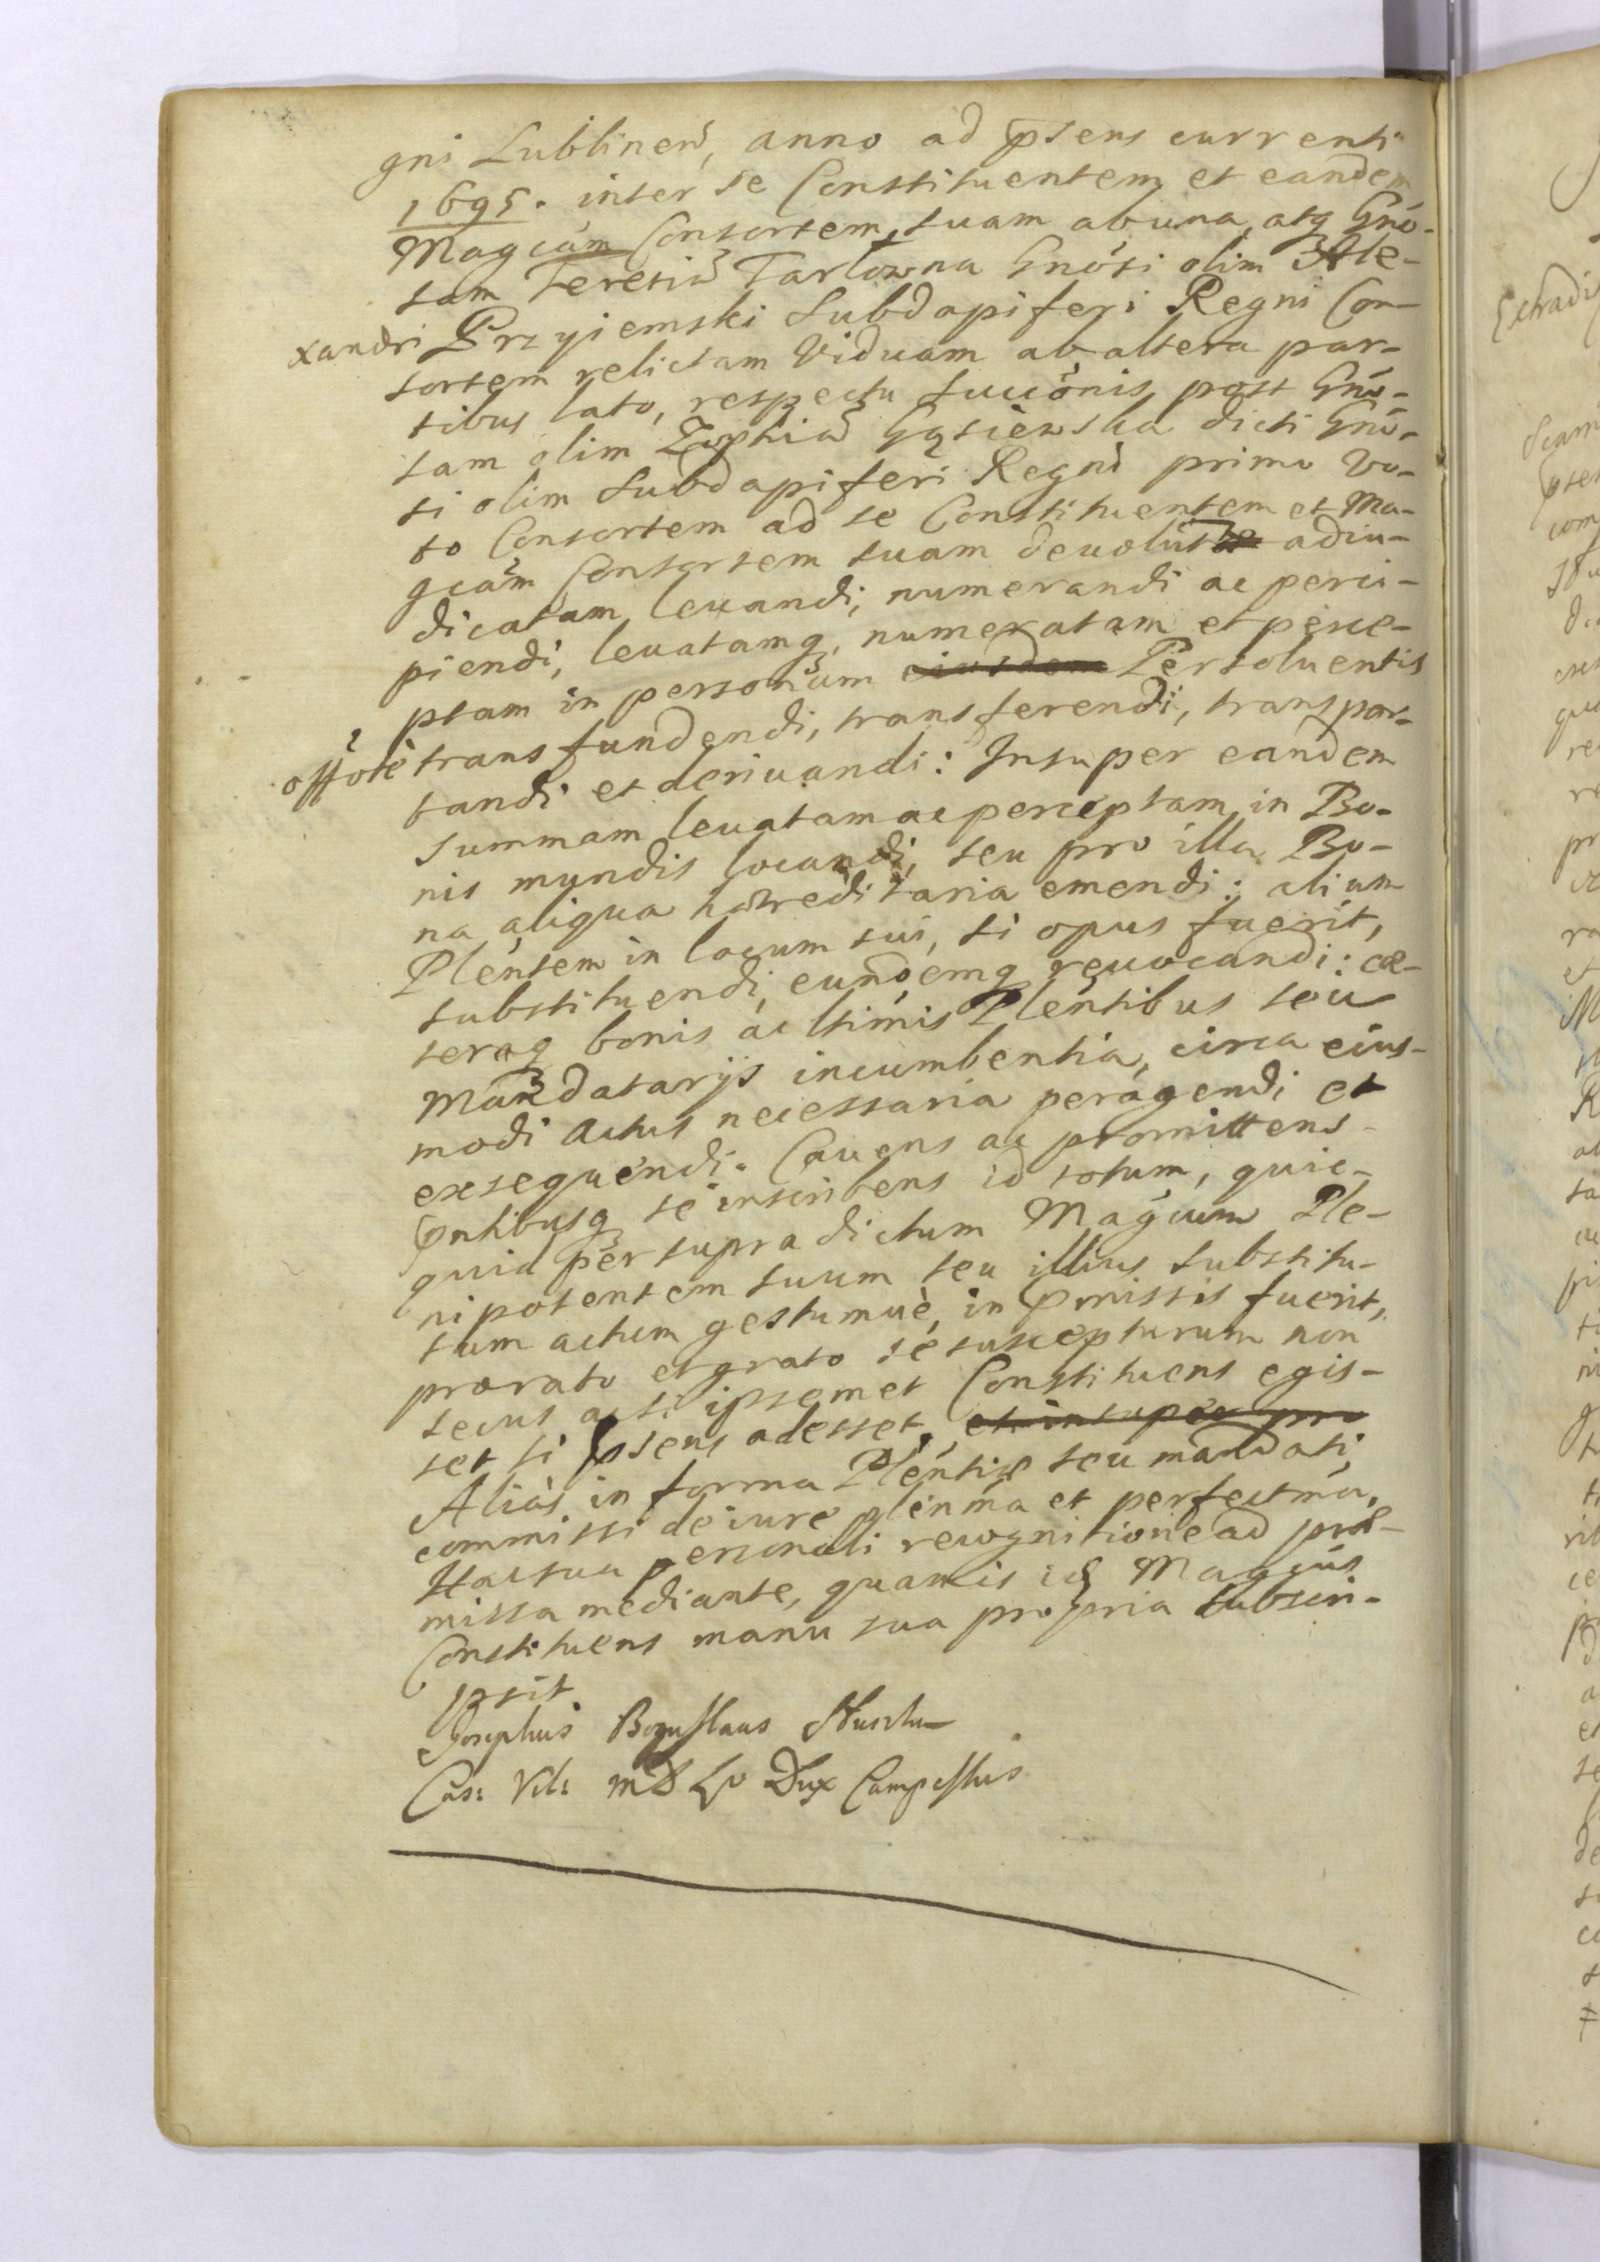 gni Lublinen, anno ad psens currenti
1695. inter se Constituentem et eandem
Magcam Consortem suam ab una, atq Gno-
sam Teresia Tarłowna Gnosi olim Ale-
xandri Przyiemski Subdapiferi Regni Con-
sortem relictam Viduam ab altera par-
tibus lato, respectu succonis post Gno-
sam olim Zophia Gąsiewska dicti Gno-
si olim Subdapiferi Regni primo vo-
to Consortem ad se Constituentem et Ma-
gcam Consortem suam devolut adiu-
dicatam levandi, numerandi ac perci-
piendi, levatamq, numeratam et perce-
ptam in personam eiusdem Persolventis
offote transfundendi, transferendi, transpor-
tandi et derivandi: Insuper eandem
summam levatam ac perceptam in Bo-
nis mundis locandi, seu pro illa Bo-
na aliqua hæreditaria emendi: alium
Plentem in locum sui, si opus fuerit,
substituendi, eundemq revocandi: cæ-
teraq bonis ac ltimis Plentibus seu
Mandatarijs incumbentia, circa eius-
modi actus necessaria peragendi et
exsequendi. Cavens ac promittens
pntibusq se inscribens id totum, quic-
quid per supra dictum Magcum Ple-
nipotentem suum seu illius substitu-
tum actum gestumve, in pmissis fuerit,
pro rato et grato se suscepturum non
secus ac si ipsemet Constituens egis-
set si psens adesset, et insuper pro
Alias in forma Plentiæ seu mandati,
commissi de iure plenma et perfectma,
Hac sua personali recognitione ad præ-
missa mediante, quam is id Magcus
Constituens manu sua propria subscri-
psit
Josephus Boguslaus Sluschu
Cas: Vil: M D L Dux Campestris